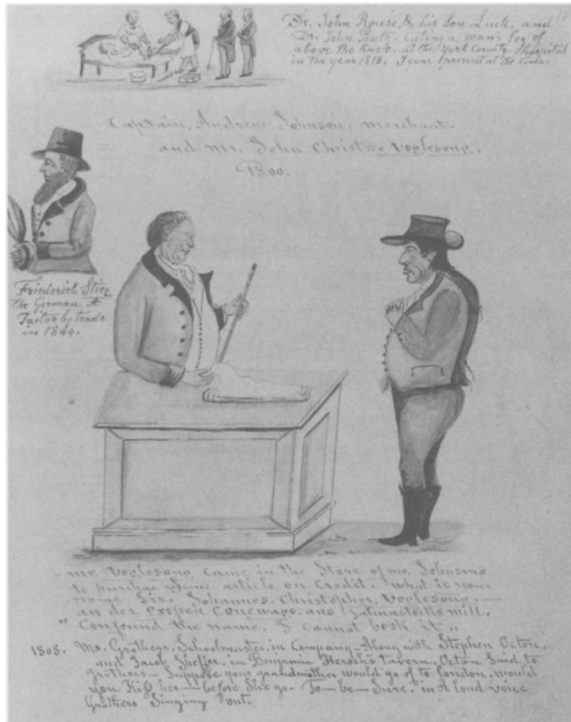 Dr. John Rouse, & his Son Luck, and
Dr. John cutting a man's Leg of
above the Knee. at the York County Hospital
in the year 1818. I was present at the time.
Captain, Andrew Johnson, merchant.
and Mr. John Christ Voglesong.
1800.
Friederich Stice,
the German A
Tailor by trade
in 1844.
Mr. Voglesong came in the Store of Mr. Johnson's
to purchas some article on Credit. What is your
name Sir. Johannes, Christopher, Voglesong,—
an der Conewago, mill.
" Confound the name, I cannot book it "
1808. Mr. Grothers, Schoolmaster, in Company Along with Stephen Octon,
and Jacob Sheffer, in Benjamin Hersh's tavern, Octon Said to
Grothers— Suppose your grandmother would go of to London, would
you Kiss her— before She go. To— be— Sure, in A loud voice
Grothers Singing out.